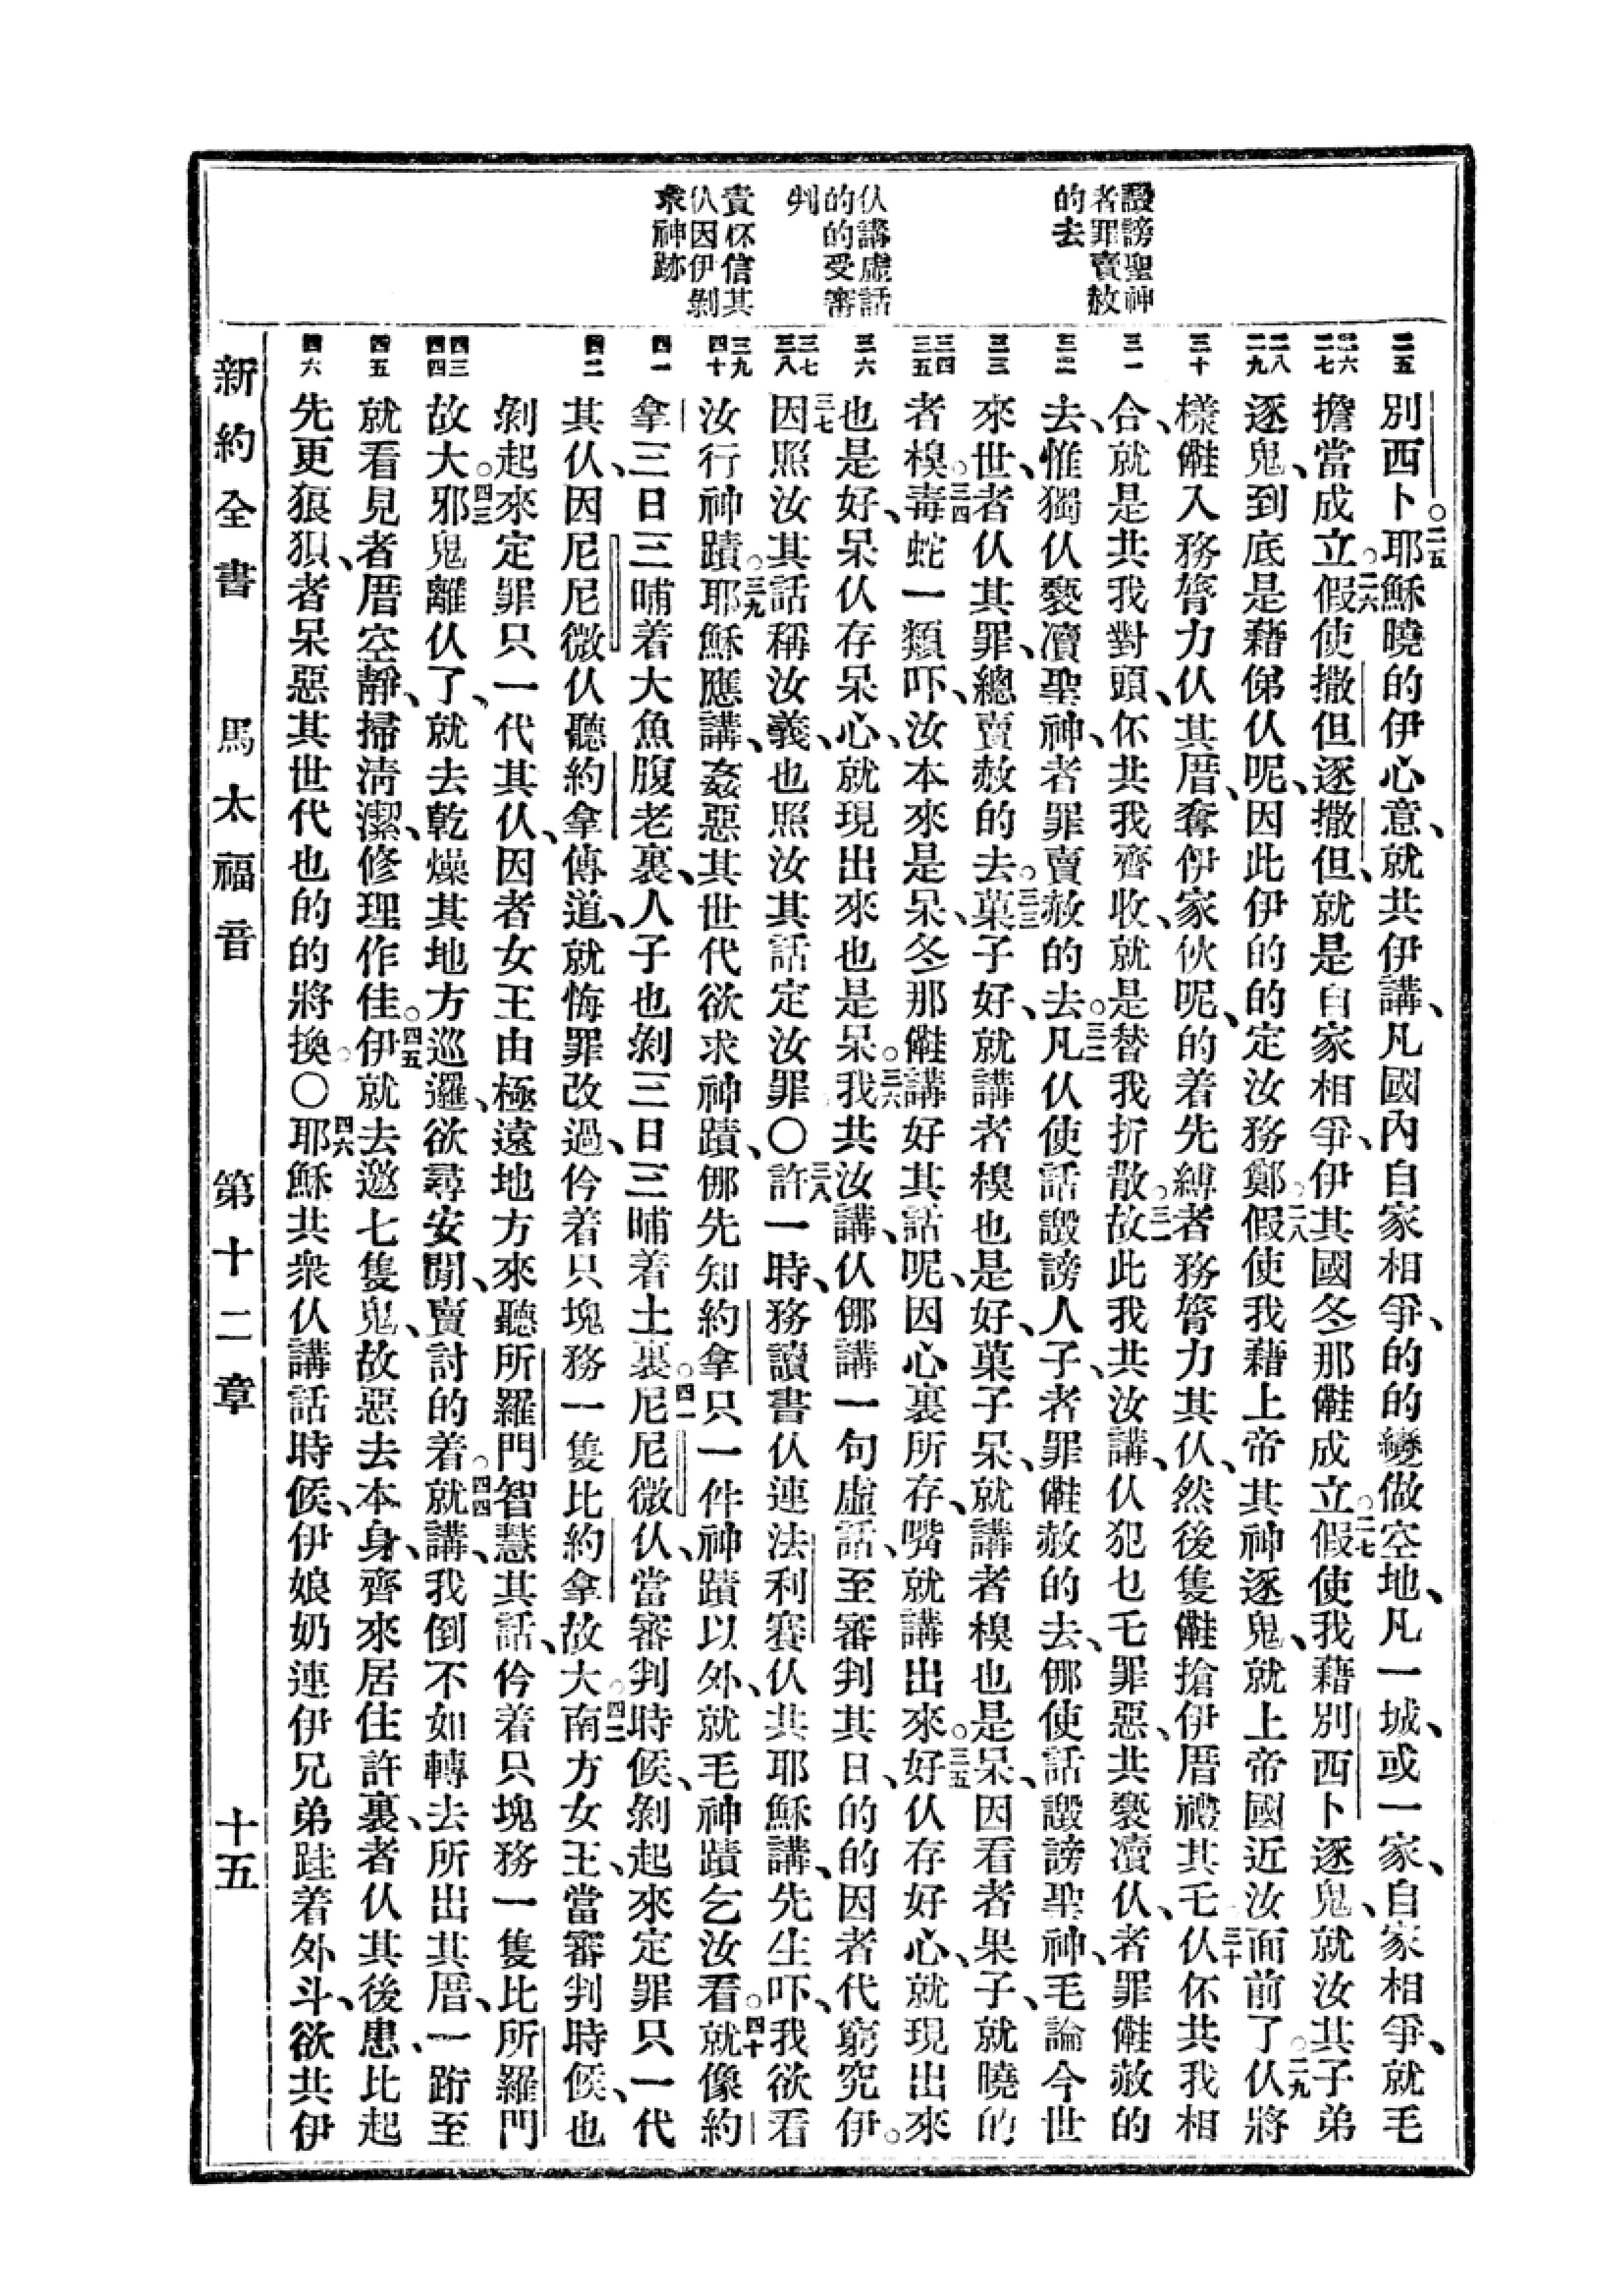 譭謗聖神
者罪賣赦
的去
仈講虛話
的的受審
判
責伓信其
仈因伊剝
求神跡
別西卜。二五耶穌曉的伊心意、就共伊講、凡國內自家相爭、的的變做空地、凡一城、或一家、自家相爭、就毛
擔當成立。二六假使撒但逐撒但、就是自家相爭、伊其國冬那儺成立。二七假使我藉別西卜逐鬼、就汝其子弟
逐鬼、到底是藉俤仈呢、因此伊的的定汝務鄭。二八假使我藉上帝其神逐鬼、就上帝國近汝面前了。二九仈將
樣儺入務膂力仈其厝、奪伊家伙呢、的着先縛者務膂力其仈、然後隻儺搶伊厝禮其乇。三十仈伓共我相
合、就是共我對頭、伓共我齊收、就是替我折散。三一故此我共汝講、仈犯乜乇罪惡、共褻瀆仈、者罪儺赦的
去、惟獨仈褻瀆聖神、者罪賣赦的去。三二凡仈使話譭謗人子、者罪儺赦的去、㑚使話譭謗聖神、毛論今世
來世、者仈其罪、總賣赦的去。三三菓子好、就講者槼也是好、菓子呆、就講者槼也是呆、因看者果子、就曉的
者槼。三四毒蛇一類吓、汝本來是呆、冬那儺講好其話呢、因心裏所存、嘴就講出來。三五好仈存好心、就現出來
也是好、呆仈存呆心、就現出來也是呆。三六我共汝講、仈㑚講一句虛話、至審判其日、的的因者代窮究伊。
三七因照汝其話稱汝義、也照汝其話定汝罪〇三八許一時、務讀書仈連法利賽仈共耶穌講、先生吓、我欲看
汝行神蹟。三九耶穌應講、姦惡其世代欲求神蹟、㑚先知約拿只一件神蹟以外、就毛神蹟乞汝看。四十就像約
拿三日三晡着大魚腹老裏、人子也剝三日三晡着土裏。四一尼尼微仈、當審判時候、剝起來定罪只一代
其仈、因尼尼微仈聽約拿傳道、就悔罪改過、仱着只塊務一隻比約拿故大。四二南方女王、當審判時候、也
剝起來定罪只一代其仈、因者女王由極遠地方來聽所羅門智慧其話、仱着只塊務一隻比所羅門
故大。四三邪鬼離仈了、就去乾燥其地方巡邏、欲尋安閒、賣討的着。四四就講、我倒不如轉去所出其厝、一跲至
就看見者厝空靜、掃淸潔、修理作佳。四五伊就去邀七隻鬼、故惡去本身、齊來居住許裏、者仈其後患、比起
先更狼狽、者呆惡其世代也的的將換。〇四六耶穌共衆仈講話時候、伊娘奶連伊兄弟跬着外斗、欲共伊
二五
二六
二七
二八
二九
三十
三一
三二
三三
三四
三五
三六
三七
三八
三九
四十
四一
四二
四三
四四
四五
四六
新約全書 馬太福音 第十二章 十五